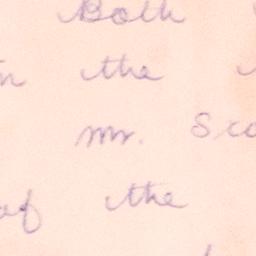 Both
the
Mr.
of the